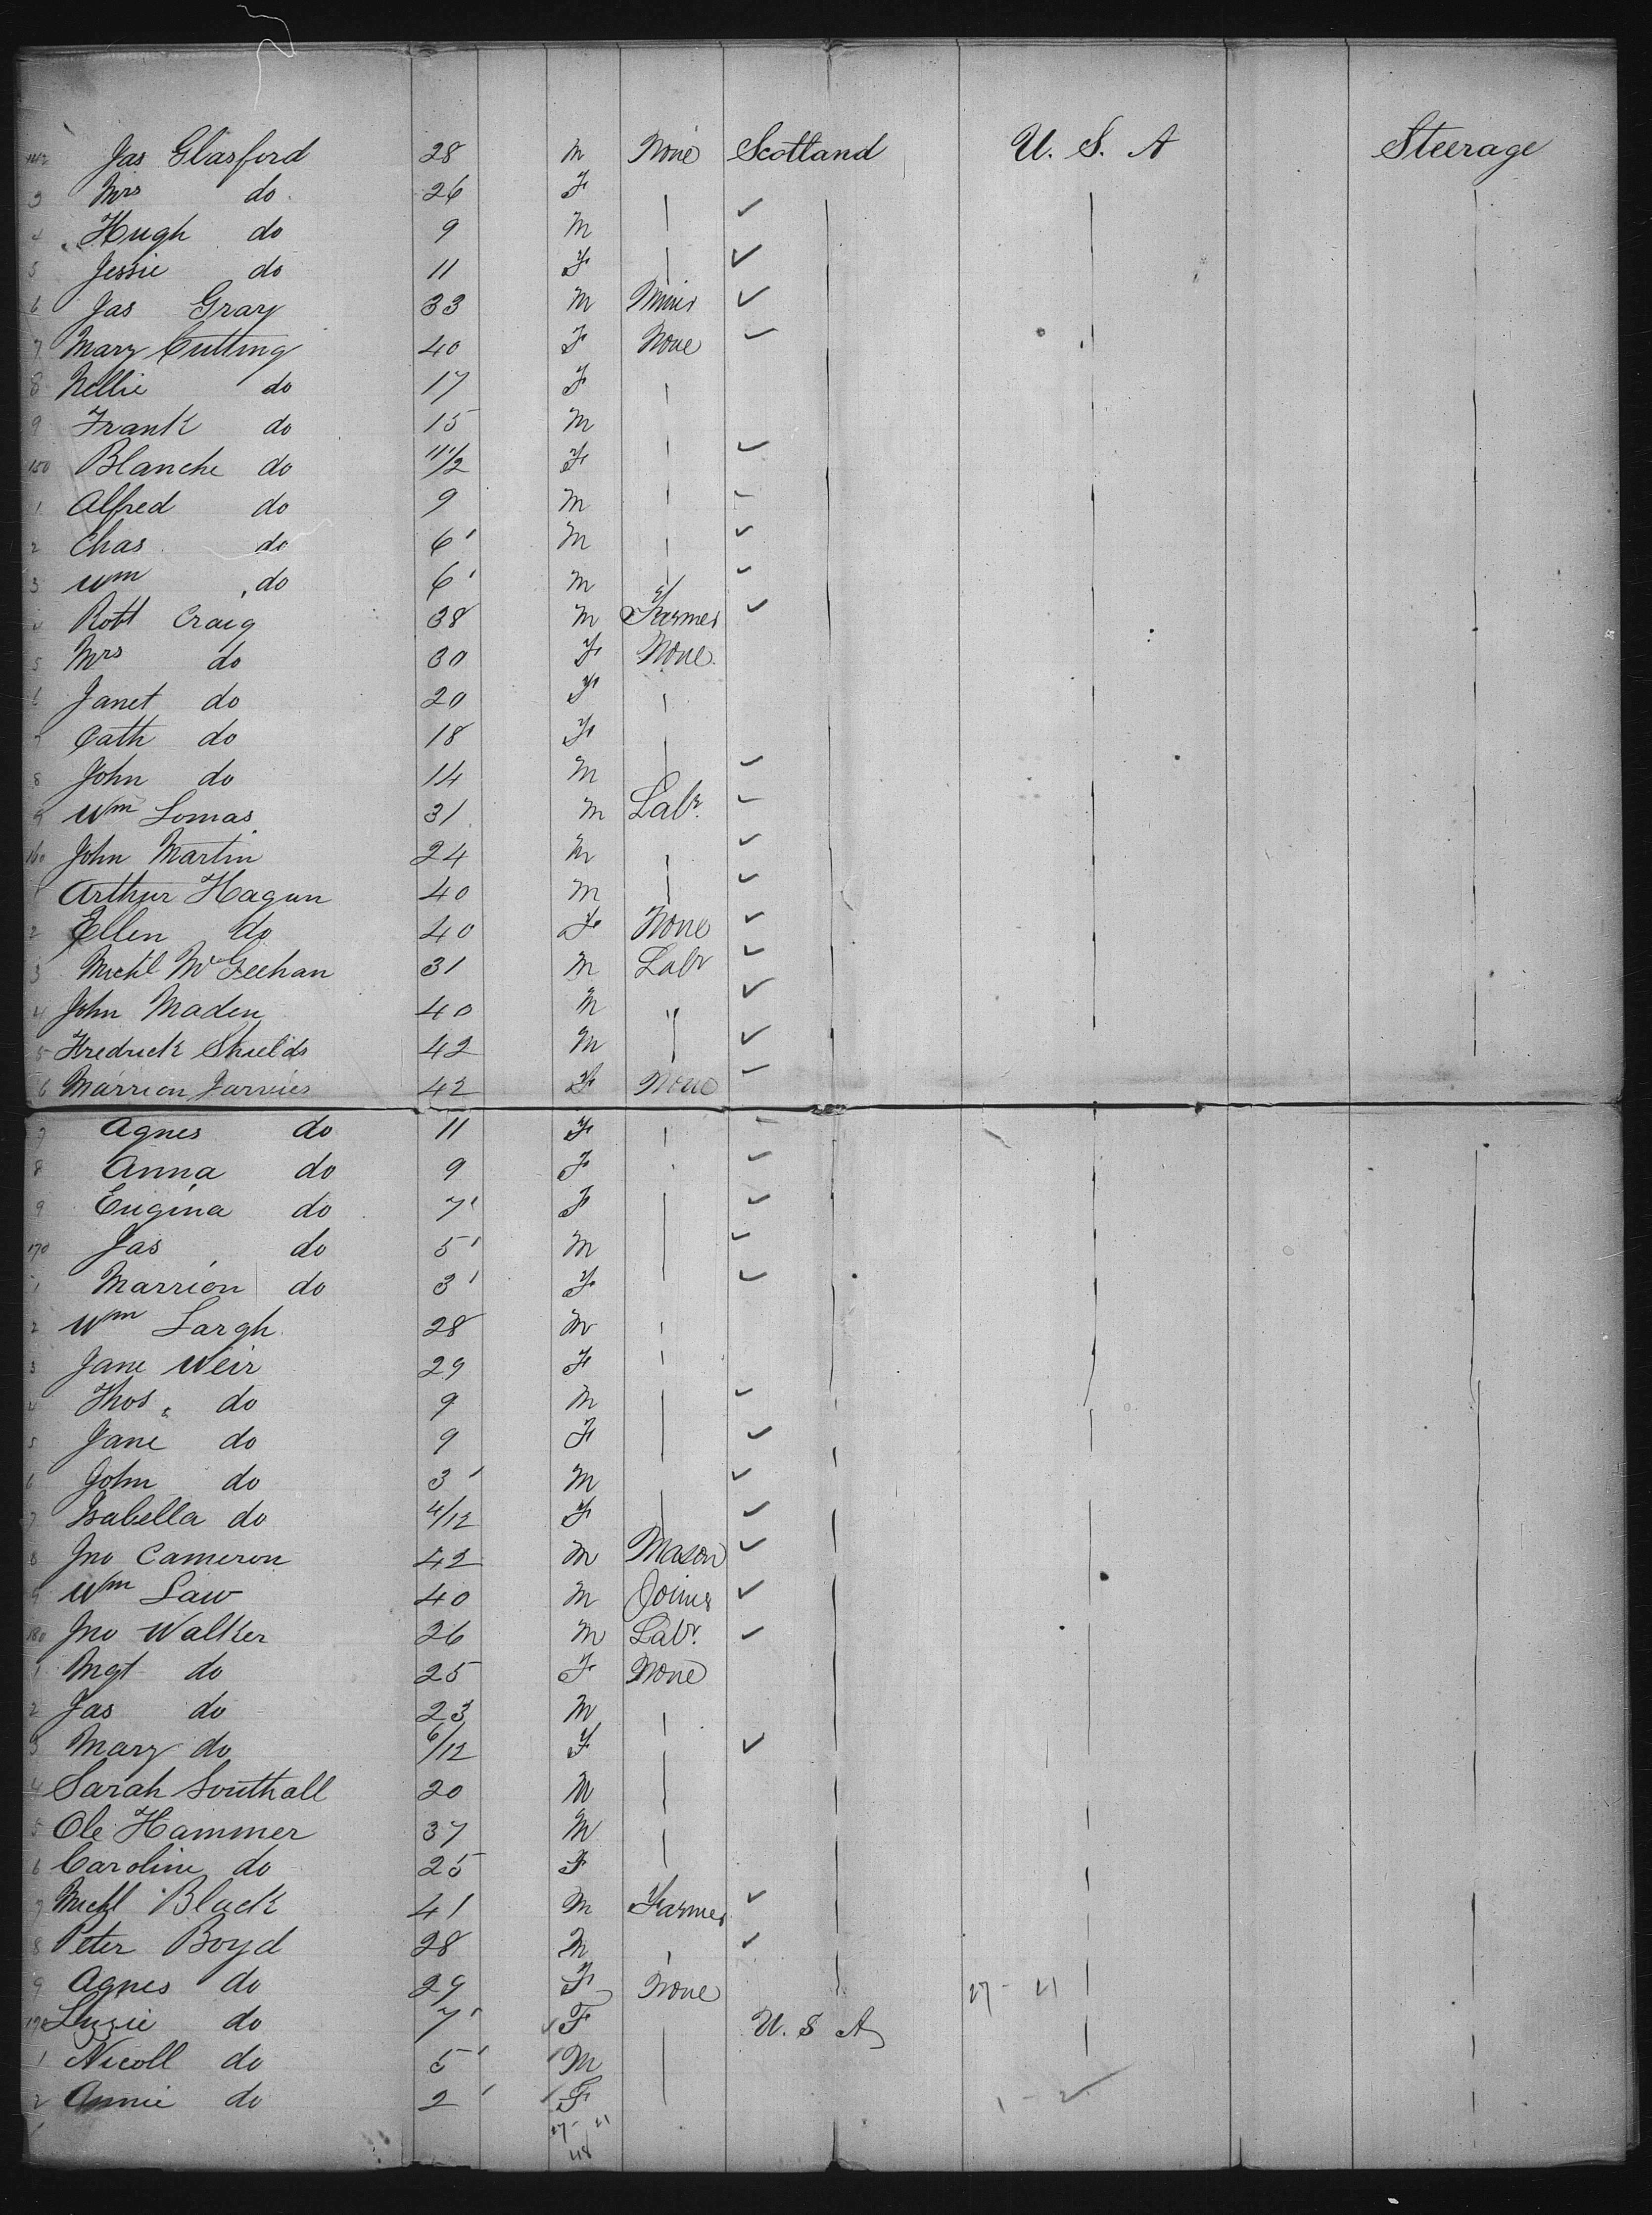 142 Jas Glasford 28 M None Scotland U. S. A Steerage
3 Mrs do 26 F
4 Hugh do 9 M
5 Jessie do 11 F
6 Jas Gray 33 M Miner
7 Mary Cutting 40 F None
8 Nellie do 17 F
9 Frank do 15 M
150 Blanche do 11 1/2 F
1 Alfred do 9 M
2 Chas do 6 M
3 Wm do 6 M
4 Robt Craig 38 M Farmer
5 Mrs do 30 F None
6 Janet do 20 F
7 Cath do 18 F
8 John do 14 M
9 Wm Lomas 31 M Labr
160 John Martin 24 M
1 Arthur Hagan 40 M
2 Ellen do 40 F None
3 Michl McGeehan 31 M Labr
4 John Maden 40 M "
5 Fredrick Shields 42 M
6 Marrion Jarvies 42 F None
7 Agnes do 11 F
8 Anna do 9 F
9 Eugina do 7 F
170 Jas do 5 M
1 Marrion do 3 F
2 Wm Largh 28 M
3 Jane Weir 29 F
4 Thos do 9 M
5 Jane do 9 F
6 John do 3 M
7 Isabella do 4/12 F
8 Jno Cameron 42 M Mason
9 Wm Law 40 M Joiner
180 Jno Walker 26 M Labr
1 Mgt do 25 F None
2 Jas do 23 M
3 Mary do 6/12 F
4 Sarah Southall 20 M
5 Ole Hammer 37 M
6 Caroline do 25 F
7 Michl Black 41 M Farmer
8 Peter Boyd 28 M
9 Agnes do 29 F None 27 - 21
190 Lizzie do 7 F U. S A
1 Nicoll do 5 M
2 Annie do 2 F 1 - 2
27 - 21
48